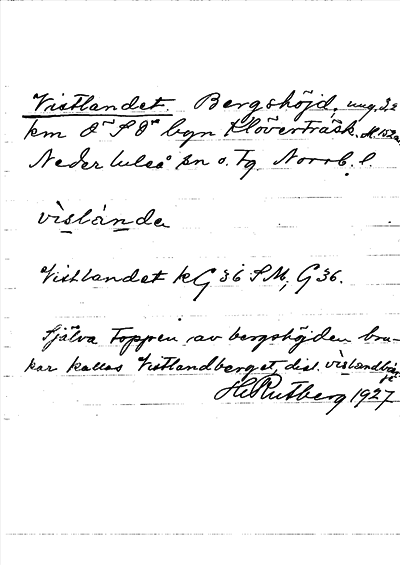 Vistlandet. Bergshöjd, ung. 3,2
km OSO byn Klöverträsk.
Neder Luleå sn o. Tg Norrb. l.
vìslànda
Vistlandet kG 36 SM; G 36.
Själva toppen av bergshöjden bru-
kar kallas Vistlandberget, dial.
H. Rutberg 1927